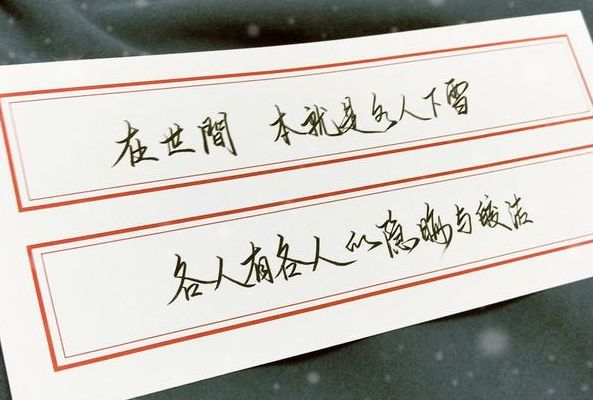 在世間 本就是各人下雪
各人有各人的隐晦与皎洁